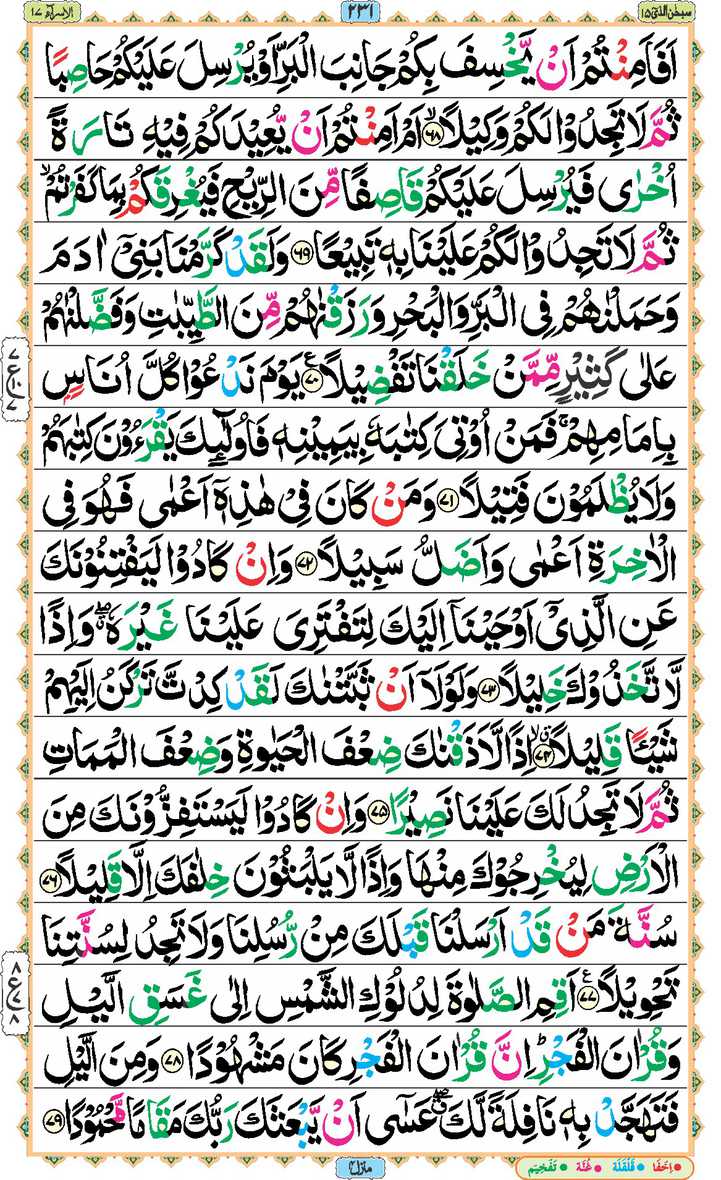 سبحٰن الذی ١٥ ٢٣١ الاسرآء ١٧
اَفَاَمِنْتُمْ اَنْ يَّخْسِفَ بِكُمْ جَانِبَ الْبَرِّ اَوْ يُرْسِلَ عَلَيْكُمْ حَاصِبًا
ثُمَّ لَا تَجِدُوْا لَكُمْ وَكِيْلًا ۙ‏﴿٦٨﴾ اَمْ اَمِنْتُمْ اَنْ يُّعِيْدَكُمْ فِيْهِ تَارَةً
اُخْرٰى فَيُرْسِلَ عَلَيْكُمْ قَاصِفًا مِّنَ الرِّيْحِ فَيُغْرِقَكُمْ بِمَا كَفَرْتُمْ ۙ
ثُمَّ لَا تَجِدُوْا لَكُمْ عَلَيْنَا بِهٖ تَبِيْعًا ﴿٦٩﴾ وَلَقَدْ كَرَّمْنَا بَنِىْۤ اٰدَمَ
وَحَمَلْنٰهُمْ فِى الْبَرِّ وَالْبَحْرِ وَرَزَقْنٰهُمْ مِّنَ الطَّيِّبٰتِ وَفَضَّلْنٰهُمْ
عَلٰى كَثِيْرٍ مِّمَّنْ خَلَقْنَا تَفْضِيْلًا ﴿٧٠﴾ يَوْمَ نَدْعُوْا كُلَّ اُنَاسٍ
بِاِمَامِهِمْ ۚ فَمَنْ اُوْتِىَ كِتٰبَهٗ بِيَمِيْنِهٖ فَاُولٰٓئِكَ يَقْرَءُوْنَ كِتٰبَهُمْ
وَلَا يُظْلَمُوْنَ فَتِيْلًا ﴿٧١﴾ وَمَنْ كَانَ فِىْ هٰذِهٖۤ اَعْمٰى فَهُوَ فِى
الْاٰخِرَةِ اَعْمٰى وَاَضَلُّ سَبِيْلًا ﴿٧٢﴾ وَاِنْ كَادُوْا لَيَفْتِنُوْنَكَ
عَنِ الَّذِىْۤ اَوْحَيْنَاۤ اِلَيْكَ لِتَفْتَرِىَ عَلَيْنَا غَيْرَهٗ ۖ وَاِذًا
لَّاتَّخَذُوْكَ خَلِيْلًا ﴿٧٣﴾ وَلَوْلَاۤ اَنْ ثَبَّتْنٰكَ لَقَدْ كِدْتَّ تَرْكَنُ اِلَيْهِمْ
شَيْئًا قَلِيْلًا ۙ ﴿٧٤﴾ اِذًا لَّاَذَقْنٰكَ ضِعْفَ الْحَيٰوةِ وَضِعْفَ الْمَمَاتِ
ثُمَّ لَا تَجِدُ لَكَ عَلَيْنَا نَصِيْرًا ﴿٧٥﴾ وَاِنْ كَادُوْا لَيَسْتَفِزُّوْنَكَ مِنَ
الْاَرْضِ لِيُخْرِجُوْكَ مِنْهَا وَاِذًا لَّا يَلْبَثُوْنَ خِلٰفَكَ اِلَّا قَلِيْلًا ﴿٧٦﴾
سُنَّةَ مَنْ قَدْ اَرْسَلْنَا قَبْلَكَ مِنْ رُّسُلِنَا وَلَا تَجِدُ لِسُنَّتِنَا
تَحْوِيْلًا ﴿٧٧﴾ اَقِمِ الصَّلٰوةَ لِدُلُوْكِ الشَّمْسِ اِلٰى غَسَقِ الَّيْلِ
وَقُرْاٰنَ الْفَجْرِ ؕ اِنَّ قُرْاٰنَ الْفَجْرِ كَانَ مَشْهُوْدًا ﴿٧٨﴾ وَمِنَ الَّيْلِ
فَتَهَجَّدْ بِهٖ نَافِلَةً لَّكَ ۖ عَسٰۤى اَنْ يَّبْعَثَكَ رَبُّكَ مَقَامًا مَّحْمُوْدًا ﴿٧٩﴾
ع
٧
٧
ع
٨
٨
منزل ٤
اِخفَا قَلقَلَة غُنَّة تَفخِيم